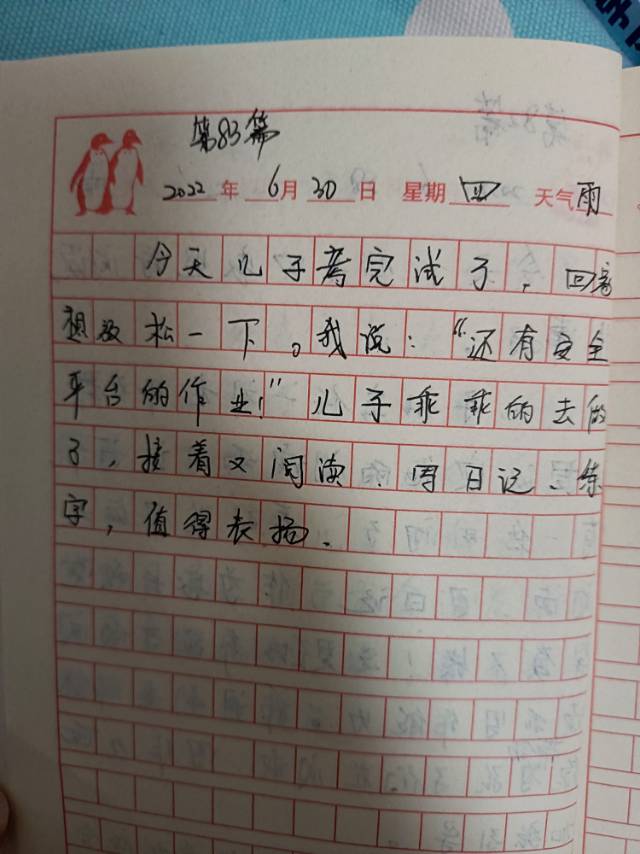 第83篇
2022年 6月30日 星期四 天气雨
今天儿子考完试了，回家
想放松一下。我说：“还有安全
平台的作业！”儿子乖乖的去做
了，接着又阅读、写日记、练
字，值得表扬.